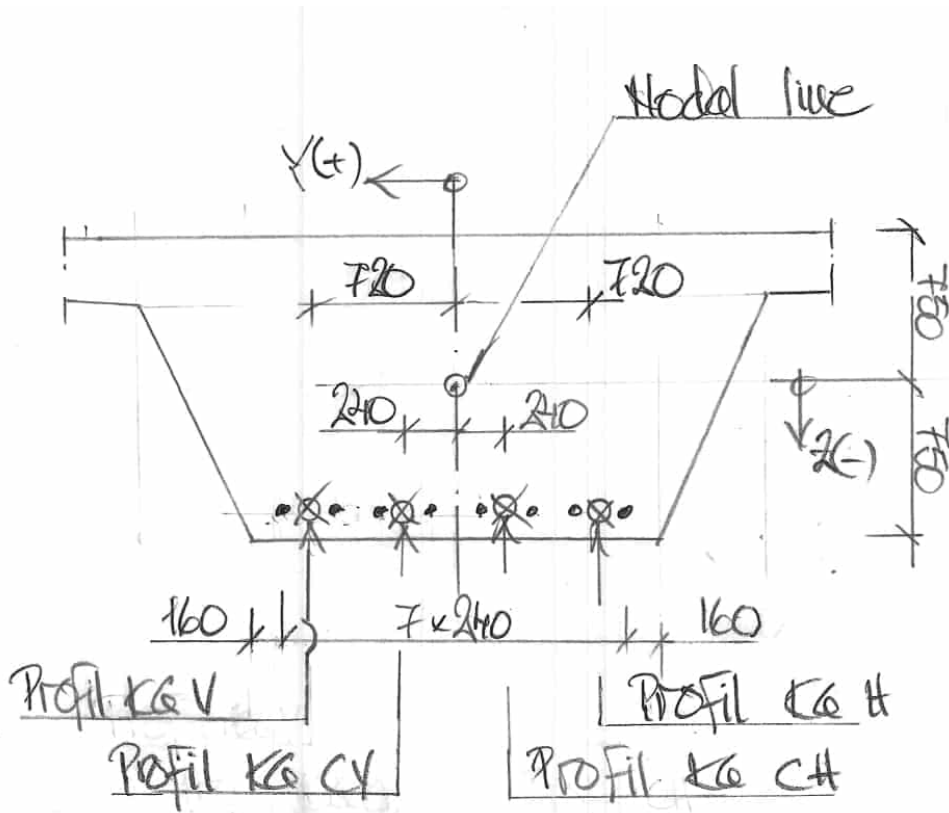 Nodal line
Y(+)
720
720
750
240
240
Z(-)
750
160
7x240
160
Profil KG V
Profil KG H
Profil KG CV
Profil KG CH